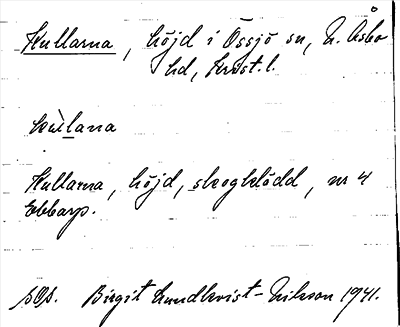 Kullarna, höjd i Össjö sn, N. Åsbo
hd, Krist. l.
kùlana
Kullarna, höjd, skogklädd, nr 4
Ebbarp.
SOS. Birgit Lundkvist-Nilsson 1941.